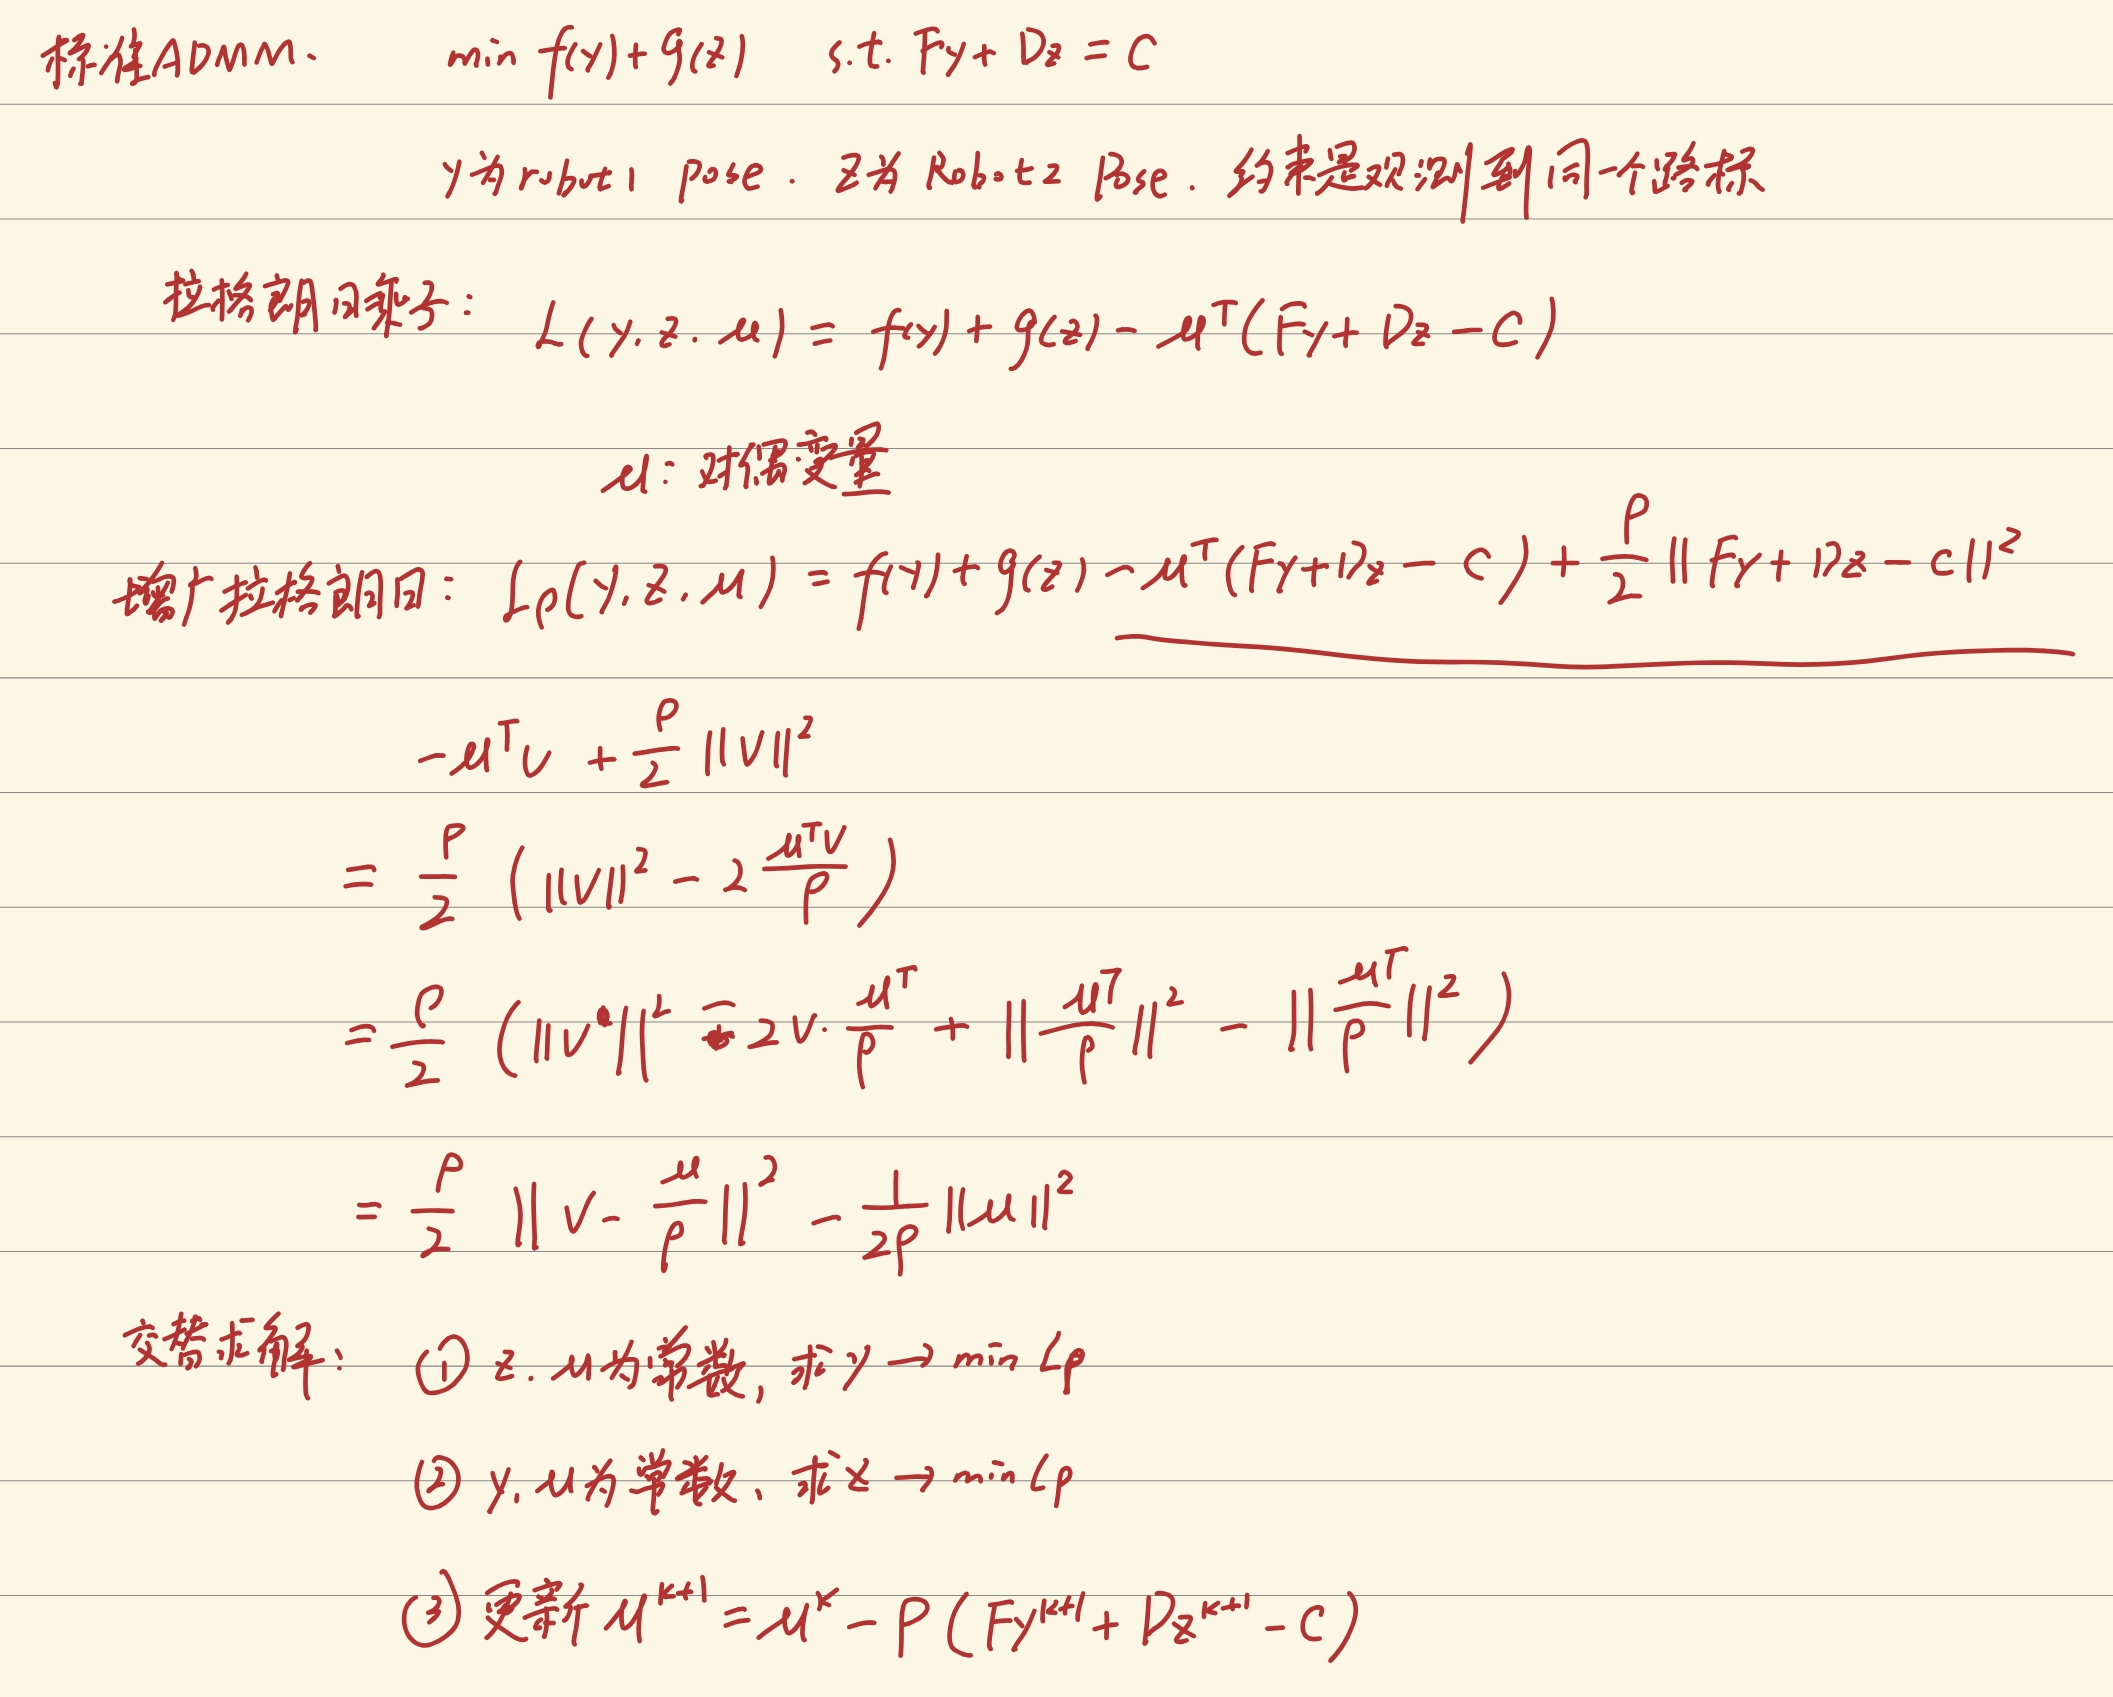 标准ADMM. min f(y)+g(z) s.t. Fy+Dz=C
y为robot1 pose. z为Robot2 Pose. 约束是观测到同一个路标
拉格朗日乘子: L(y.z.μ) = f(y)+g(z)-μ^T(Fy+Dz-C)
μ: 对偶变量
增广拉格朗日: Lρ(y.z.μ) = f(y)+g(z)-μ^T(Fy+Dz-C)+ρ/2||Fy+Dz-C||²
-μ^T V + ρ/2 ||V||²
= ρ/2 (||V||² - 2 μ^T V/ρ)
= ρ/2 (||V||² - 2V·μ^T/ρ + ||μ^T/ρ||² - ||μ^T/ρ||²)
= ρ/2 ||V-μ/ρ||² - 1/2ρ ||μ||²
交替求解: ① z.μ为常数, 求y → min Lρ
② y.μ为常数, 求z → min Lρ
③ 更新 μ^{k+1} = μ^k - ρ(Fy^{k+1}+Dz^{k+1}-C)